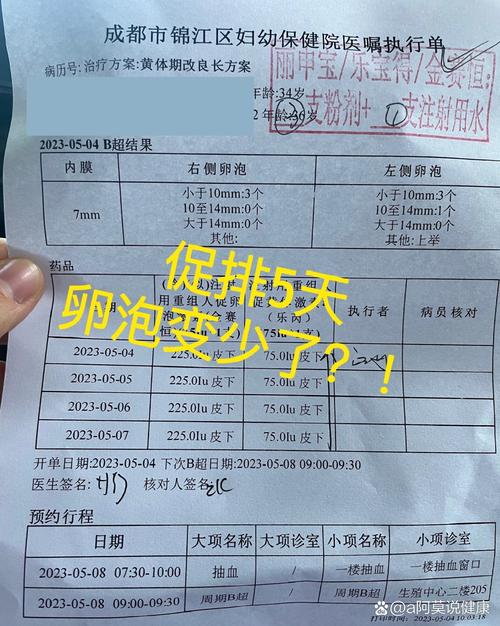 成都市锦江区妇幼保健院医嘱执行单
病历号:治疗方案:黄体期改良长方案
丽申宝/乐宝得/金赛恒:
②支粉剂+ ①支注射用水
年龄:34岁
2 年龄:36岁
2023-05-04 B超结果
内膜 右侧卵泡 左侧卵泡
7mm
小于10mm:3个 小于10mm:3个
10至14mm:0个 10至14mm:1个
大于14mm:0个 大于14mm:0个
其他: 其他:上举
促排5天
卵泡变少了?!
药品
期 执行者 病员核对
用重组人促卵
(乐芮)
2023-05-04 225.0Iu 皮下 75.0Iu 皮下
2023-05-05 225.0Iu 皮下 75.0Iu 皮下
2023-05-06 225.0Iu 皮下 75.0Iu 皮下
2023-05-07 225.0Iu 皮下 75.0Iu 皮下
开单日期:2023-05-04 下次B超日期:2023-05-08 09:00-09:30
医生签名: 核对人签名:
预约行程
日期 大项名称 大项诊室 小项名称 小项诊室
2023-05-08 07:30-10:00 抽血 / 一楼抽血 一楼抽血窗口
2023-05-08 09:00-09:30 周期B超 / 周期B超 生殖中心二楼205
打印时间:2023-05-04 10:03:18
@a阿莫说健康